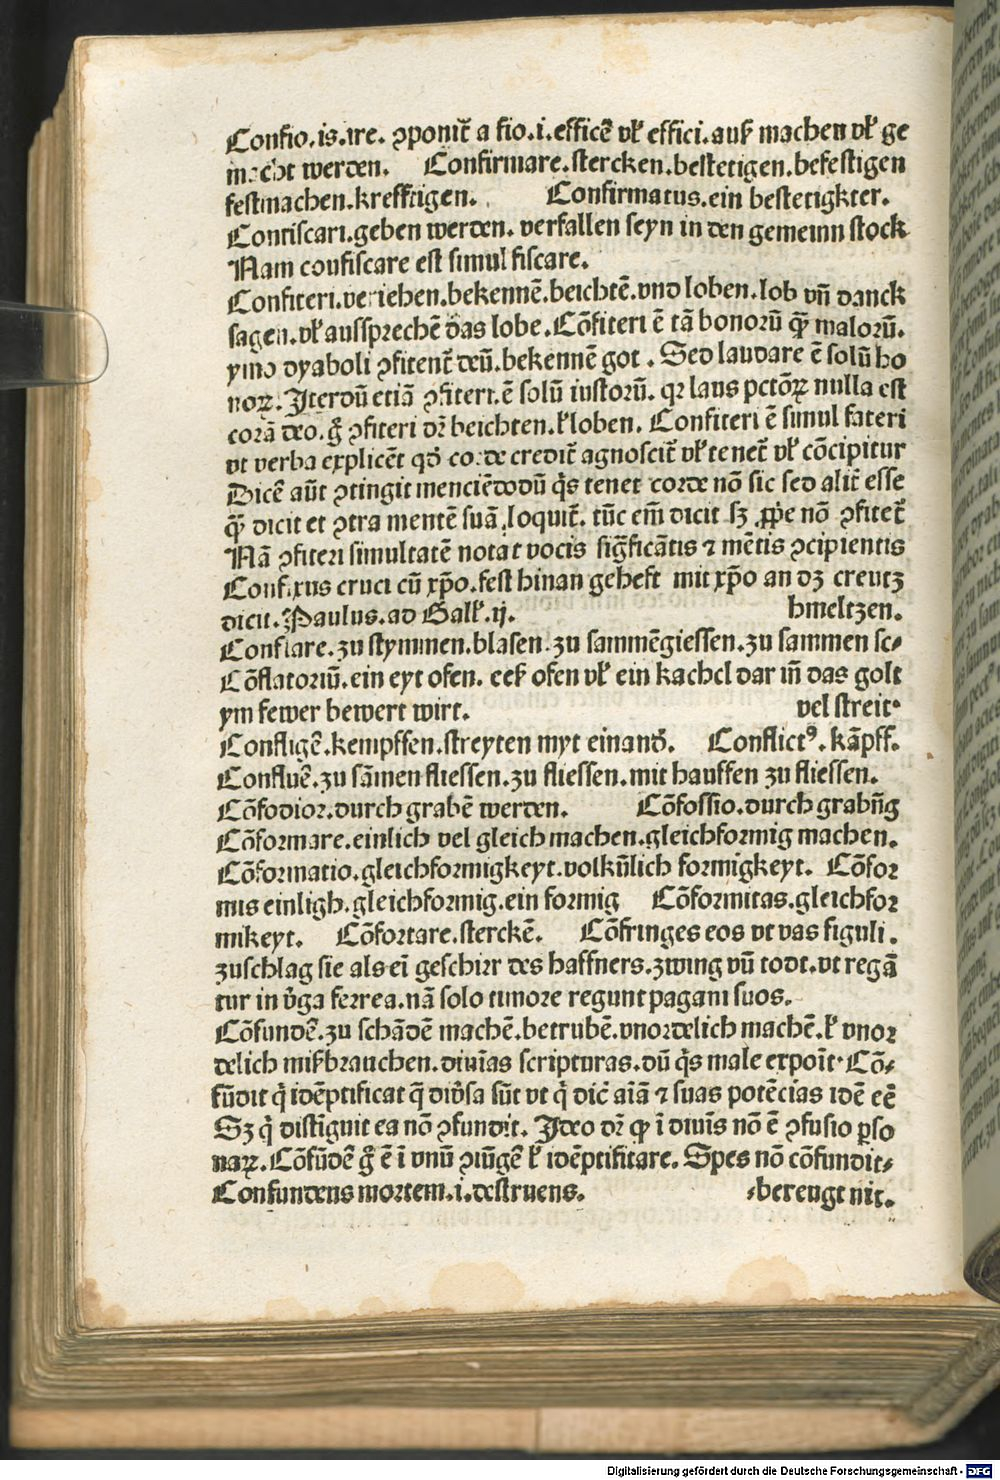 Confio.is.ire. ↄponit᷑ a fio.i.efficē vĺ effici.auß machen vĺ ge
macht werden. Confirmare.stercken.bestetigen.befestigen
festmachen.krefftigen. Confirmatus.ein bestetigkter.
Confiscari.geben werden. verfallen seyn in den gemeinn stock
Nam confiscare est simul fiscare.
Confiteri.veriehen.bekennē.beichtē.vnd loben.lob vñ danck
sagen.vĺ aussprechē das lobe.Cōfiteri ē tā bonorū q̄ꝫ malorū.
ymo dyaboli ↄfitent᷑ deū.bekennē got. Sed laudare ē solū bo
norꝝ.Iterdū etiā ↄfiteri.ē solū iustorū. qꝛ laus pctōꝝ nulla est
corā deo.g̊ ↄfiteri dꝛ beichten.ĺ loben. Confiteri ē simul fateri
vt verba explicēt qd̓ corde credit᷑ agnoscit᷑ vĺ tenet᷑ vĺ cōcipitur
Dicē aūt ↄtingit menciēdo dū q̇s tenet corde nō sic sed alit᷑ esse
q̄ꝫ dicit et ↄtra mentē suā loquit᷑. tūc em̄ dicit sꝫ ꝓpe nō ↄfitet᷑
Nā ↄfiteri simultatē notat vocis sig̅ficātis ⁊ mētis ↄcipientis
Confixus cruci cū xp̄o.fest hinan gehefft mit xp̄o an dz creutz
dicit.Paulus.ad Galĺ.ij. hmeltzen.
Conflare.zu stymmen.blasen.zu sammēgiessen.zu sammen sc⸗
Cōflatoriū.ein eyt ofen. eeĺ ofen vĺ ein kachel dar iñ das golt
ym fewer bewert wirt. vel streit·
Confligē.kempffen.streyten myt einand̓. Conflictꝰ.kāpff.
Confluē.zu sāmen fliessen.zu fliessen.mit hauffen zu fliessen.
Cōfodior.durch grabē werden. Cōfossio.durch grabūg
Cōformare.einlich vel gleich machen.gleichformig machen.
Cōformatio.gleichformigkeyt.volkūlich formigkeyt. Cōfor
mis einligh.gleichformig.ein formig Cōformitas.gleichfor
mikeyt. Cōfortare.sterckē. Cōfringes eos vt vas figuli.
zuschlag sie als eī geschirr des haffners.zwing vñ todt.vt regā
tur in v̓ga ferrea.nā solo timore regunt pagani suos.
Cōfundē.zu schādē machē.betrubē.vnordelich machē.ĺ vnor
delich mißbrauchen.diuīas scripturas.dū q̇s male expoīt·Cō⸗
fūdit q̇ idēptificat q̄ div̓sa sūt vt q̇ dic̄ aīā ⁊ suas potēcias idē eē
Sꝫ q̇ distīguit ea nō ↄfundit. Ideo dꝛ ꝙ ī diuīs nō ē ↄfusio ꝑso
naꝝ.Cōfūdē g̊ ē ī vnū ↄiūgē ĺ idēptifitare. Spes nō cōfundit⸗
Confundens mortem.i.destruens. ⸗bereugt nit.
Digitalisierung gefördert durch die Deutsche Forschungsgemeinschaft - DFG